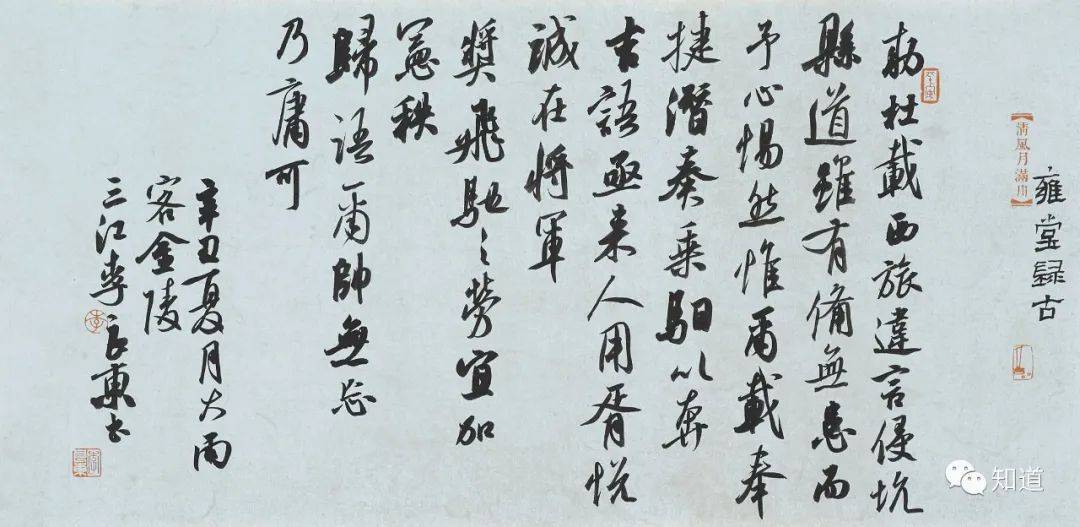 雍堂録古
【清風月滿舟】
勅杜載西旅違言侵坑
縣道雖有備無患而
予心惕然惟爾載奉
捷潛奏乘馹以奔
吉語亟来人用胥悅
誠在將軍
奬飛馳之勞宜加
憲秩
歸語爾帥無忘
乃庸可
辛丑夏月大雨
客金陵
三江李良東书
知道